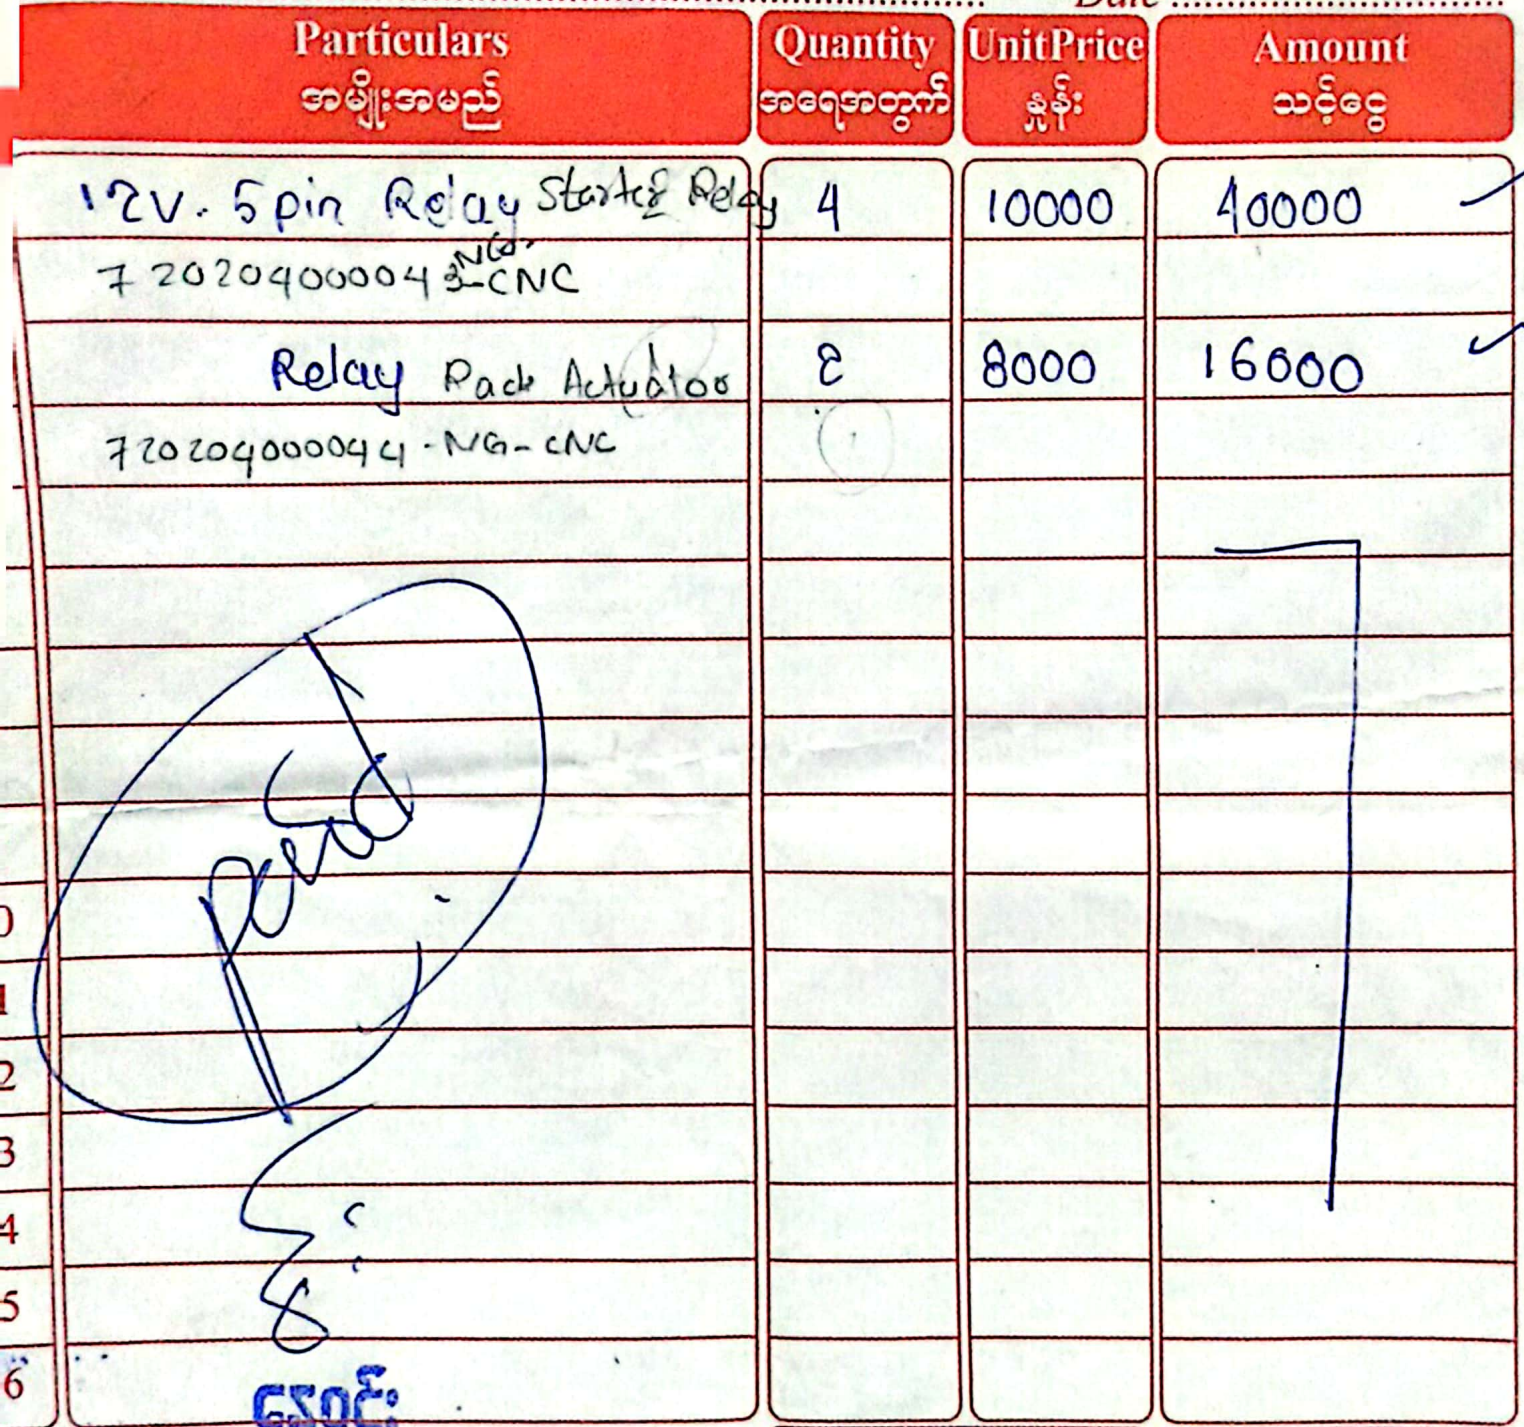 Date
Particulars Quantity UnitPrice Amount
အမျိုးအမည် အရေအတွက် နှုန်း သင့်ငွေ
12V. 5pin Relay Starter Relay 4 10000 40000
NG-
720204000043-CNC
Relay Pack Actuator 2 8000 16000
720204000044-NG-CNC
Paid
0
1
2
3
4
5
6